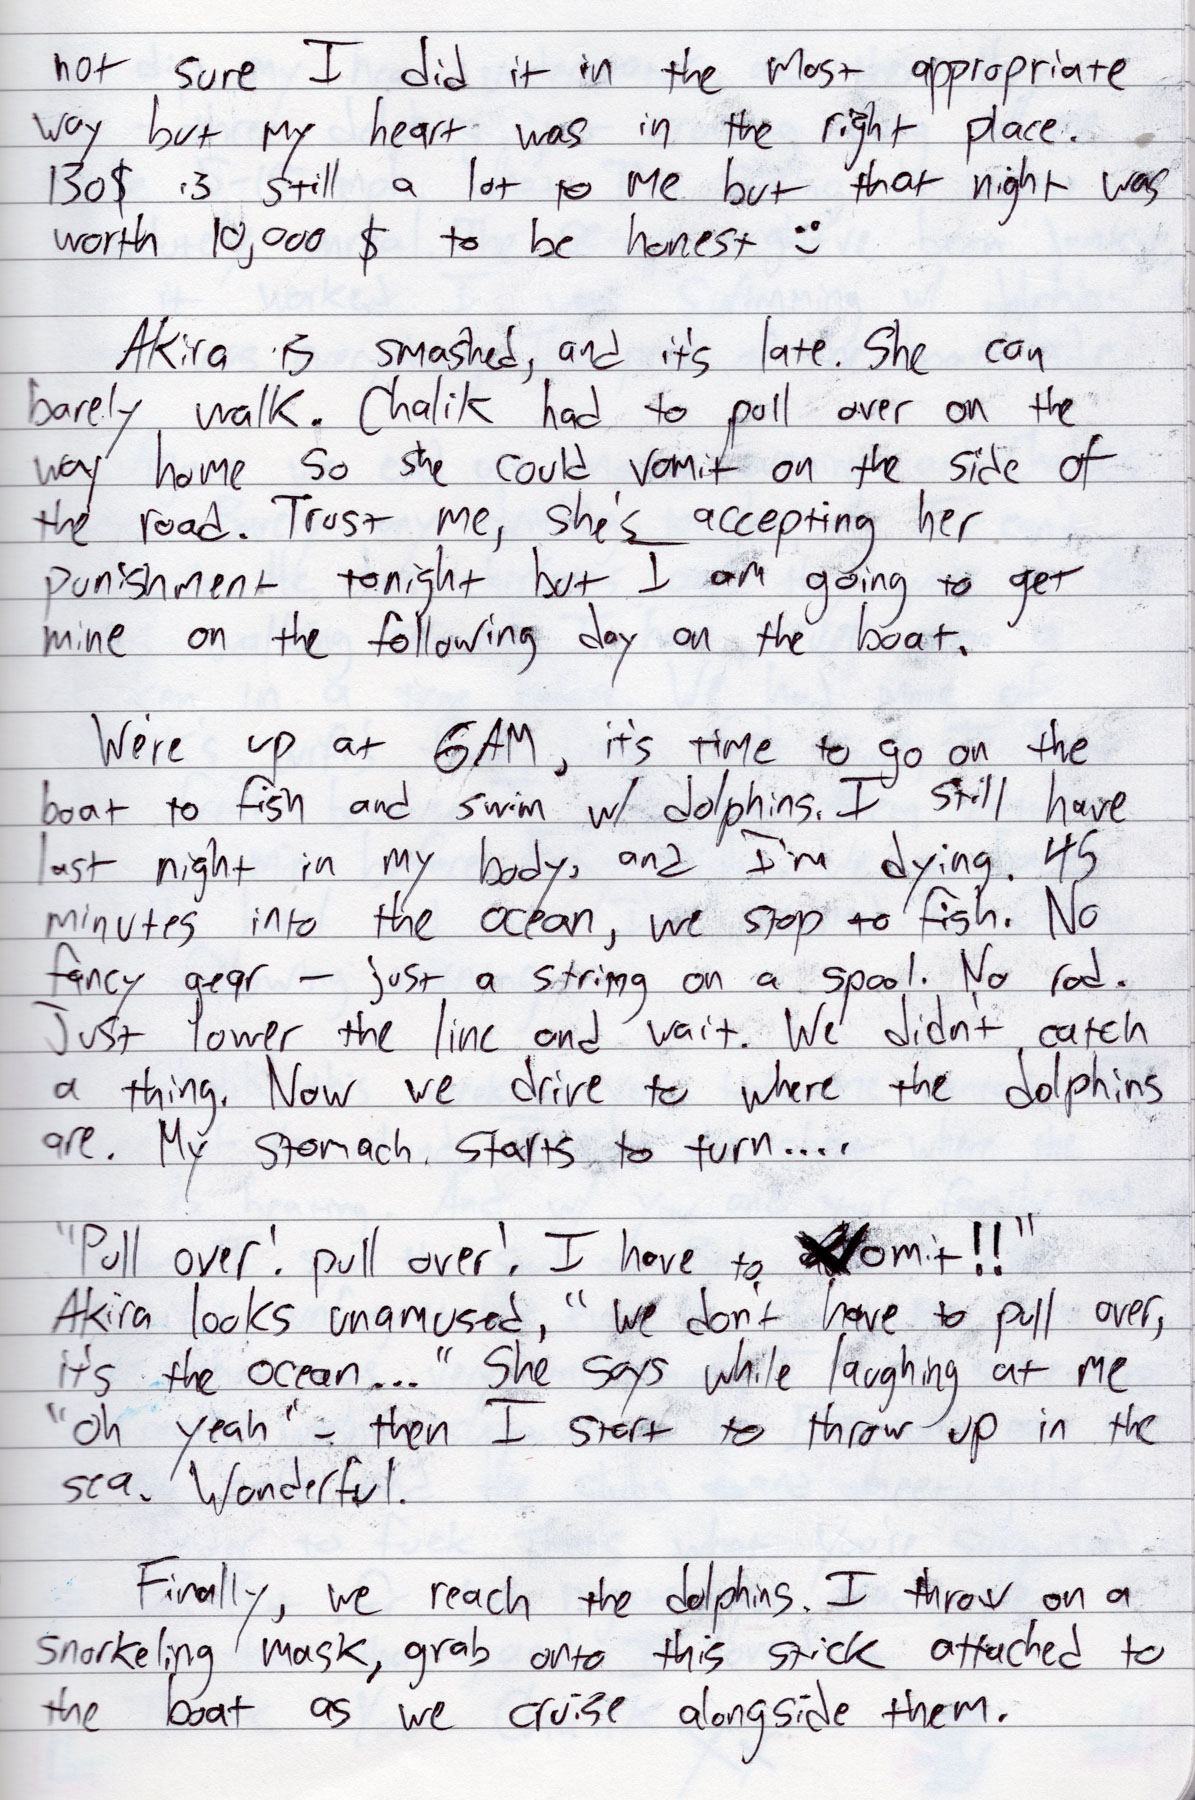 not sure I did it in the most appropriate
way but my heart was in the right place.
130$ is still a lot to me but that night was
worth 10,000 $ to be honest :)
Akira is smashed, and it's late. She can
barely walk. Chalik had to pull over on the
way home so she could vomit on the side of
the road. Trust me, she's accepting her
punishment tonight but I am going to get
mine on the following day on the boat.
We're up at 6AM, it's time to go on the
boat to fish and swim w/ dolphins. I still have
last night in my body, and I'm dying. 45
minutes into the ocean, we stop to fish. No
fancy gear – just a string on a spool. No rod.
Just lower the line and wait. We didn't catch
a thing. Now we drive to where the dolphins
are. My stomach starts to turn....
"Pull over! pull over! I have to vomit!!"
Akira looks unamused, "we don't have to pull over,
it's the ocean..." She says while laughing at me
"oh yeah" – then I start to throw up in the
sea. Wonderful.
Finally, we reach the dolphins. I throw on a
snorkeling mask, grab onto this stick attached to
the boat as we cruise alongside them.